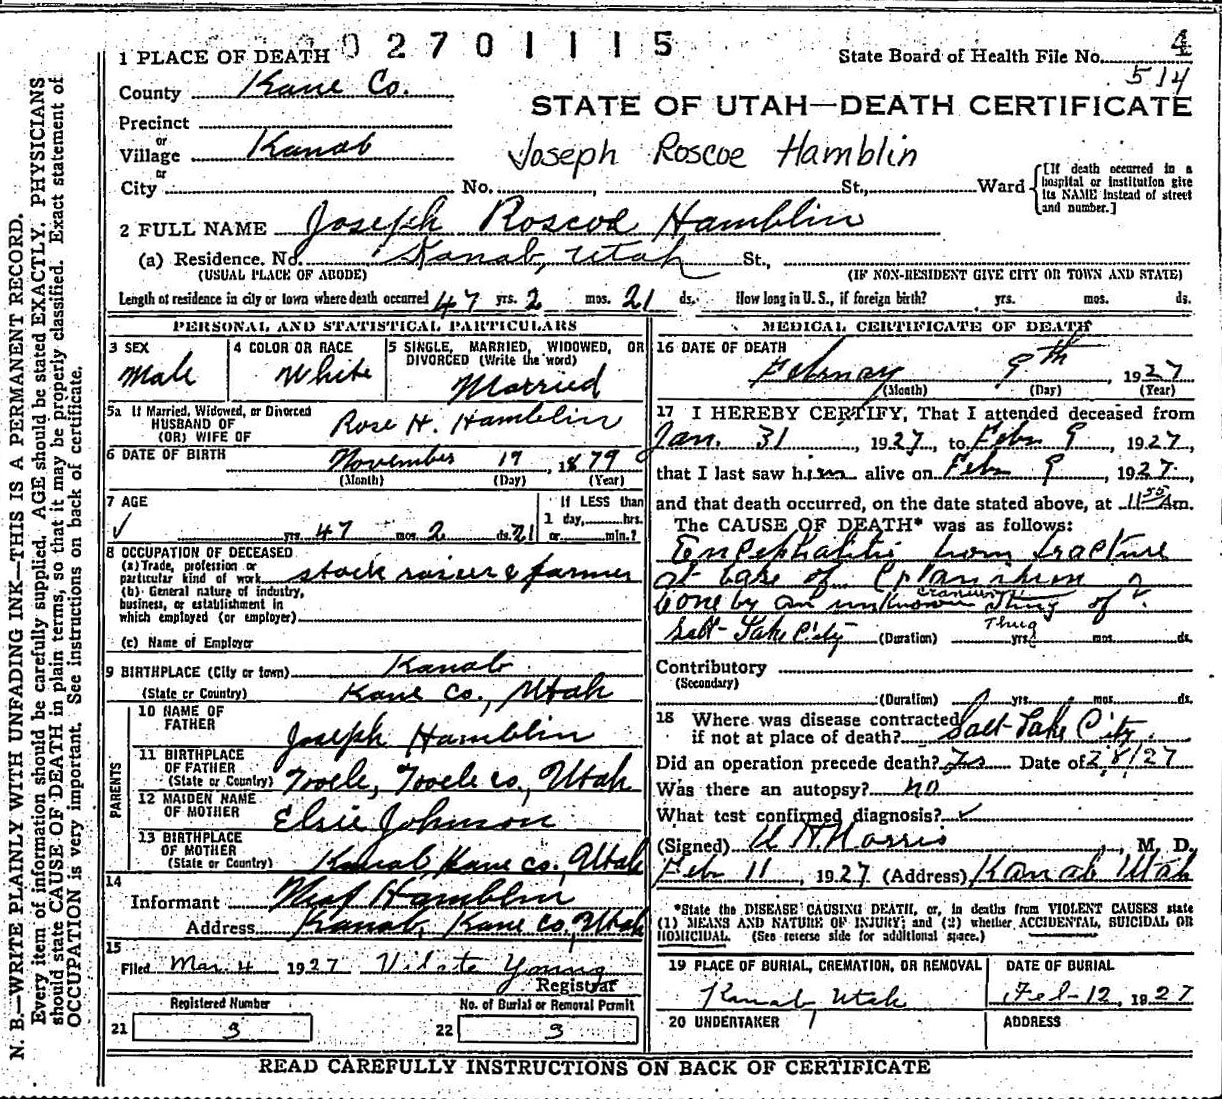 N. B.—WRITE PLAINLY WITH UNFADING INK—THIS IS A PERMANENT RECORD.
Every item of information should be carefully supplied. AGE should be stated EXACTLY. PHYSICIANS
should state CAUSE OF DEATH in plain terms, so that it may be properly classified. Exact statement of
OCCUPATION is very important. See instructions on back of certificate.
02701115
1 PLACE OF DEATH
State Board of Health File No. 4
514
County Kane Co.
STATE OF UTAH—DEATH CERTIFICATE
Precinct
or
Village Kanab
Joseph Roscoe Hamblin
or
City No. St., Ward
[If death occurred in a
hospital or institution give
its NAME instead of street
and number.]
2 FULL NAME Joseph Roscoe Hamblin
(a) Residence. No. Kanab, Utah St.,
(USUAL PLACE OF ABODE) (IF NON-RESIDENT GIVE CITY OR TOWN AND STATE)
Length of residence in city or town where death occurred 47 yrs. 2 mos. 21 ds. How long in U. S., if foreign birth? yrs. mos. ds.
PERSONAL AND STATISTICAL PARTICULARS
3 SEX
Male
4 COLOR OR RACE
White
5 SINGLE, MARRIED, WIDOWED, OR
DIVORCED (Write the word)
Married
5a If Married, Widowed, or Divorced
HUSBAND OF
(OR) WIFE OF
Rose H. Hamblin
6 DATE OF BIRTH
November 19, 1879
(Month) (Day) (Year)
7 AGE
✓
yrs. 47 mos. 2 ds. 21
If LESS than
1 day, hrs.
or min.?
8 OCCUPATION OF DECEASED
(a) Trade, profession or
particular kind of work stock raiser & farmer
(b) General nature of industry,
business, or establishment in
which employed (or employer)
(c) Name of Employer
9 BIRTHPLACE (City or town) Kanab
(State or Country) Kane Co., Utah
PARENTS
10 NAME OF
FATHER Joseph Hamblin
11 BIRTHPLACE
OF FATHER
(State or Country) Tooele, Tooele co., Utah
12 MAIDEN NAME
OF MOTHER Elsie Johnson
13 BIRTHPLACE
OF MOTHER
(State or Country) Kanab, Kane co., Utah
14
Informant Hamblin
Address Kanab, Kane co, Utah
15
Filed Mar. 4 1927 Vilate Young
Registrar
Registered Number
21 3
No. of Burial or Removal Permit
22 3
MEDICAL CERTIFICATE OF DEATH
16 DATE OF DEATH
February 9th, 1927
(Month) (Day) (Year)
17 I HEREBY CERTIFY, That I attended deceased from
Jan. 31, 1927, to Feb 9, 1927,
that I last saw him alive on Feb 9, 1927,
and that death occurred, on the date stated above, at 11 55 Am.
The CAUSE OF DEATH* was as follows:
Encephalitis from fracture
at base of
cranium
done by an unknown Thug of
Thug
Salt Lake City (Duration) yrs. mos. ds.
Contributory
(Secondary)
(Duration) yrs. mos. ds.
18 Where was disease contracted
if not at place of death? Salt Lake City
Did an operation precede death? Yes Date of 2/8/27
Was there an autopsy? no
What test confirmed diagnosis? ✓
(Signed) Norris, M. D.
Feb 11, 1927 (Address) Kanab Utah
*State the DISEASE CAUSING DEATH, or, in deaths from VIOLENT CAUSES state
(1) MEANS AND NATURE OF INJURY; and (2) whether ACCIDENTAL, SUICIDAL OR
HOMICIDAL. (See reverse side for additional space.)
19 PLACE OF BURIAL, CREMATION, OR REMOVAL
Kanab Utah
DATE OF BURIAL
Feb-12, 1927
20 UNDERTAKER
ADDRESS
READ CAREFULLY INSTRUCTIONS ON BACK OF CERTIFICATE